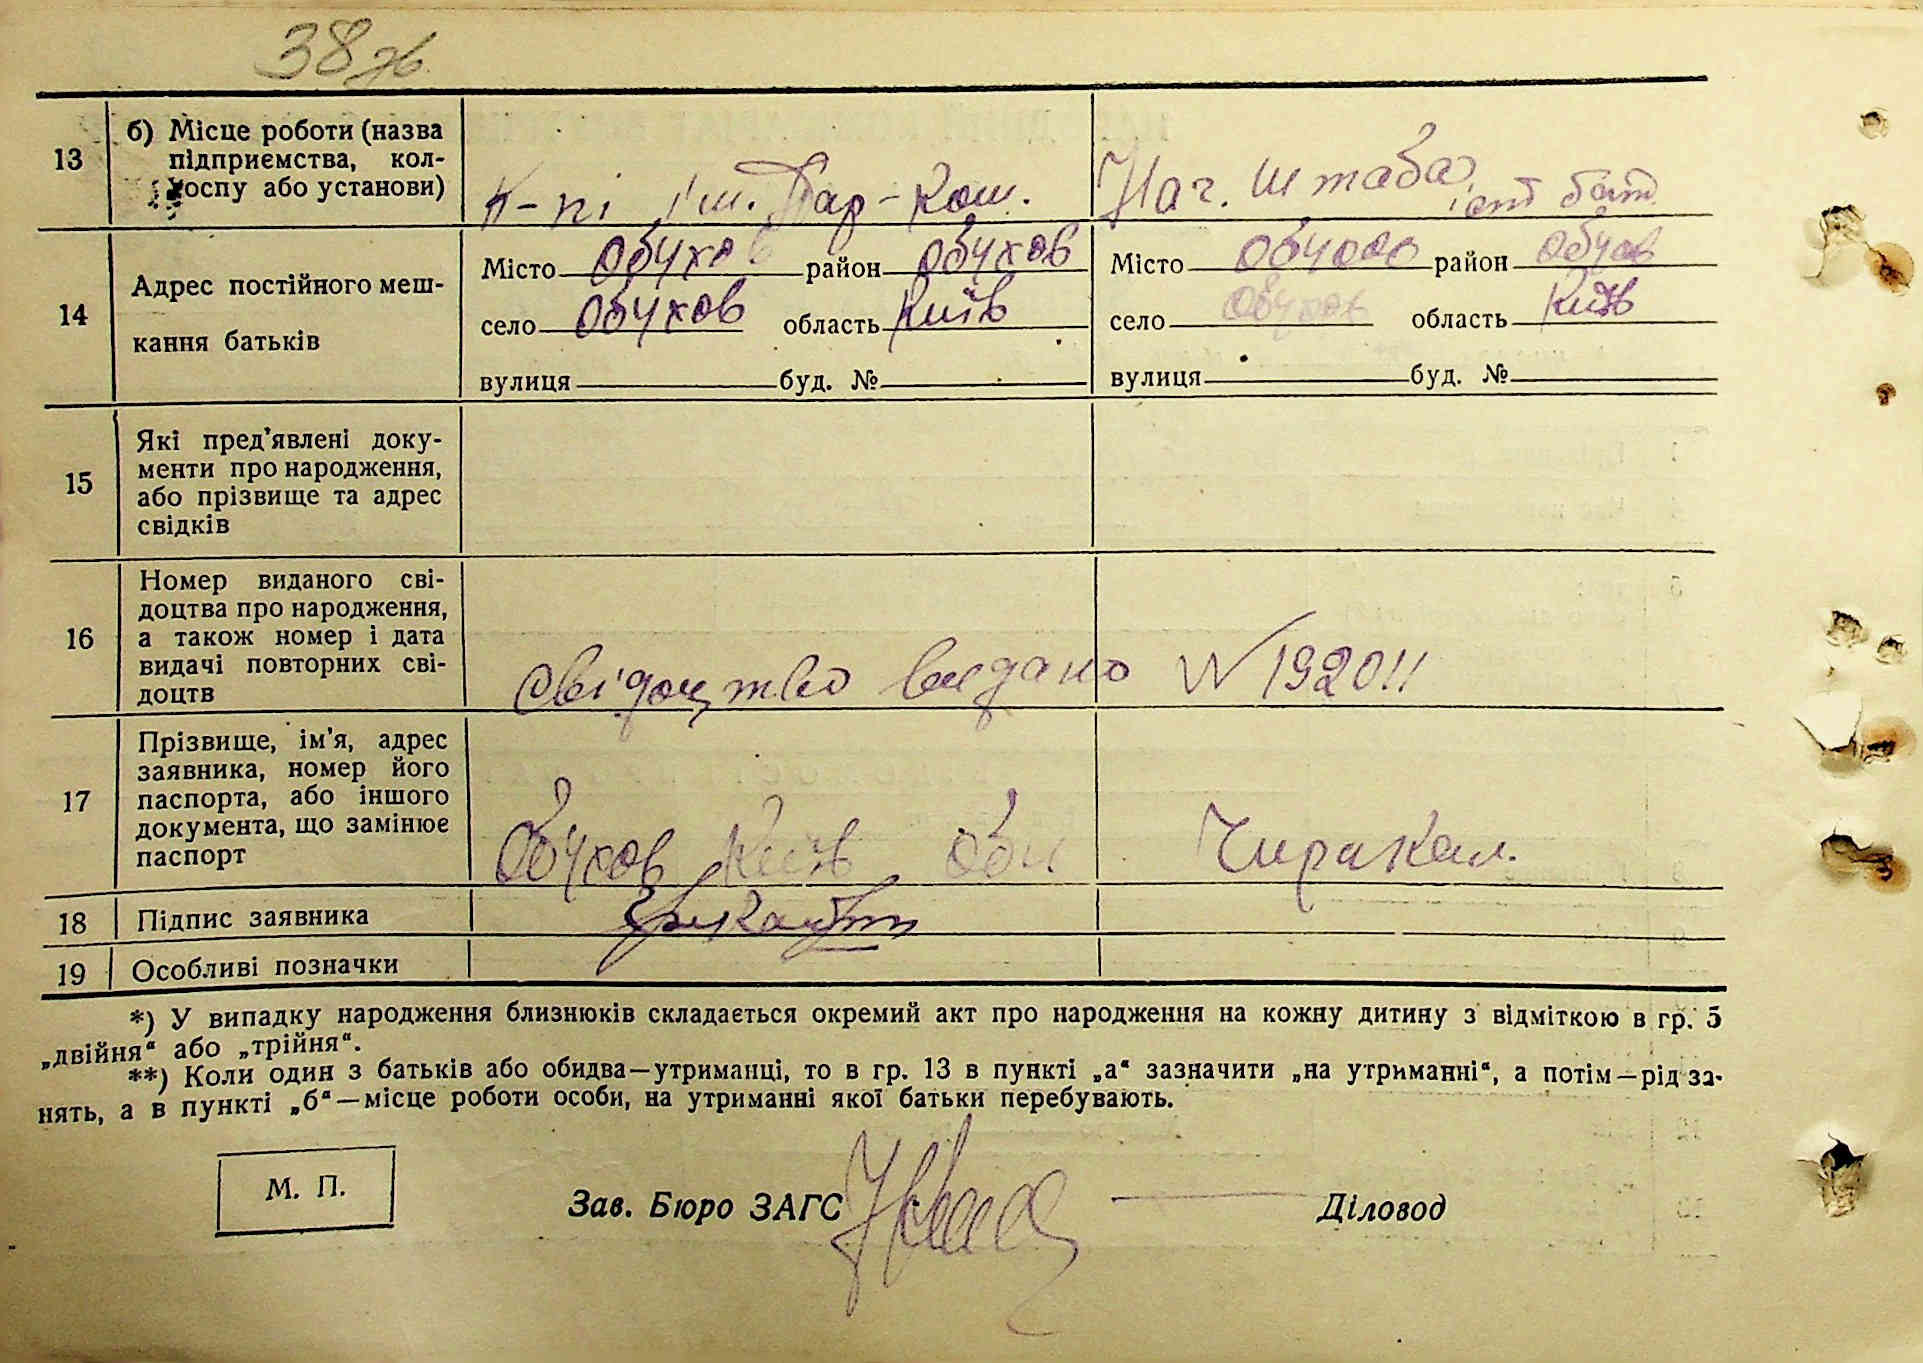 38зв.
13
б) Місце роботи (назва
підприємства, кол-
хоспу або установи)
К-пі ім. Пар-Ком.
Нач. штаба
14
Адрес постійного меш-
кання батьків
Місто Обухов район Обухов
село Обухов область Київ
вулиця буд. №
Місто район
село Обухов область Київ
вулиця буд. №
15
Які пред'явлені доку-
менти про народження,
або прізвище та адрес
свідків
16
Номер виданого сві-
доцтва про народження,
а також номер і дата
видачі повторних сві-
доцтв
Свідоцтво видано № 192011
17
Прізвище, ім'я, адрес
заявника, номер його
паспорта, або іншого
документа, що замінює
паспорт
Обухов Київ Обл.
18
Підпис заявника
19
Особливі позначки
*) У випадку народження близнюків складається окремий акт про народження на кожну дитину з відміткою в гр. 5
„двійня“ або „трійня“.
**) Коли один з батьків або обидва—утриманці, то в гр. 13 в пункті „а“ зазначити „на утриманні“, а потім—рід за-
нять, а в пункті „б“—місце роботи особи, на утриманні якої батьки перебувають.
М. П.
Зав. Бюро ЗАГС
Діловод